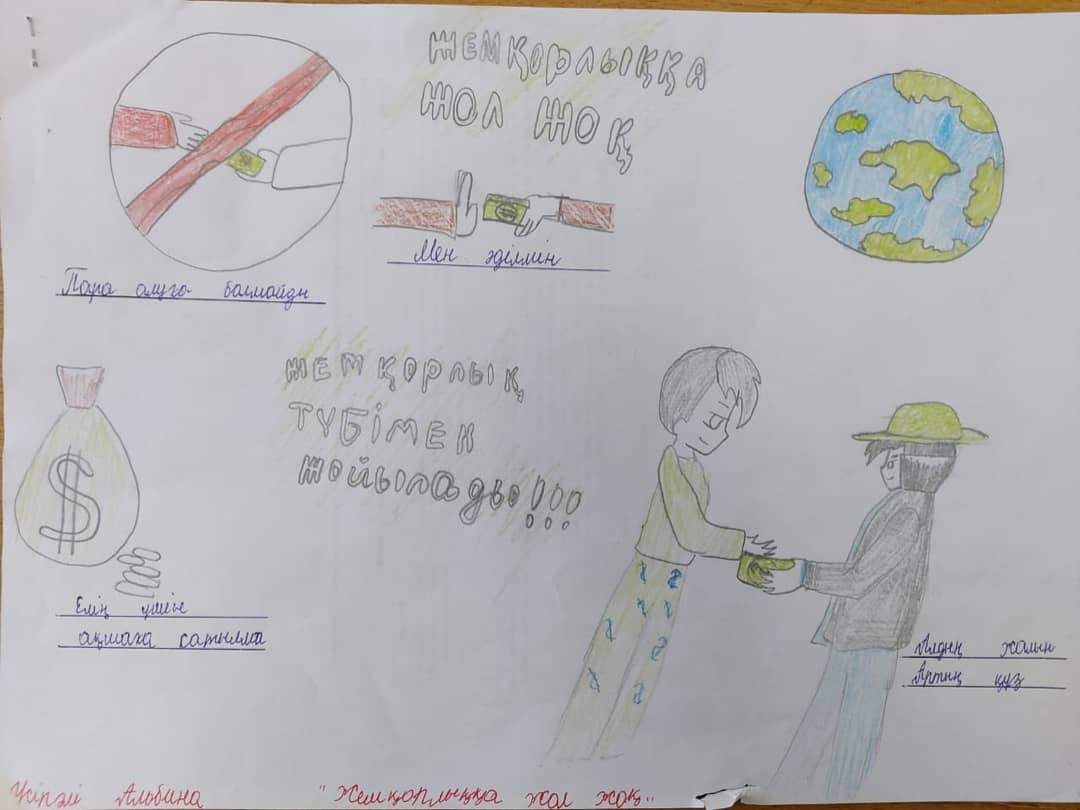 ЖЕМҚОРЛЫҚҚА
ЖОЛ ЖОҚ
Мен әділмін
Пара алуға болмайды
ЖЕМҚОРЛЫҚ
ТҮБІМЕН
ЖОЙЫЛАДЫ!!!
$
Елің үшін
ақшаға сатылма
Алдың жалын
Артың құз
Альбина "Жемқорлыққа жол жоқ"